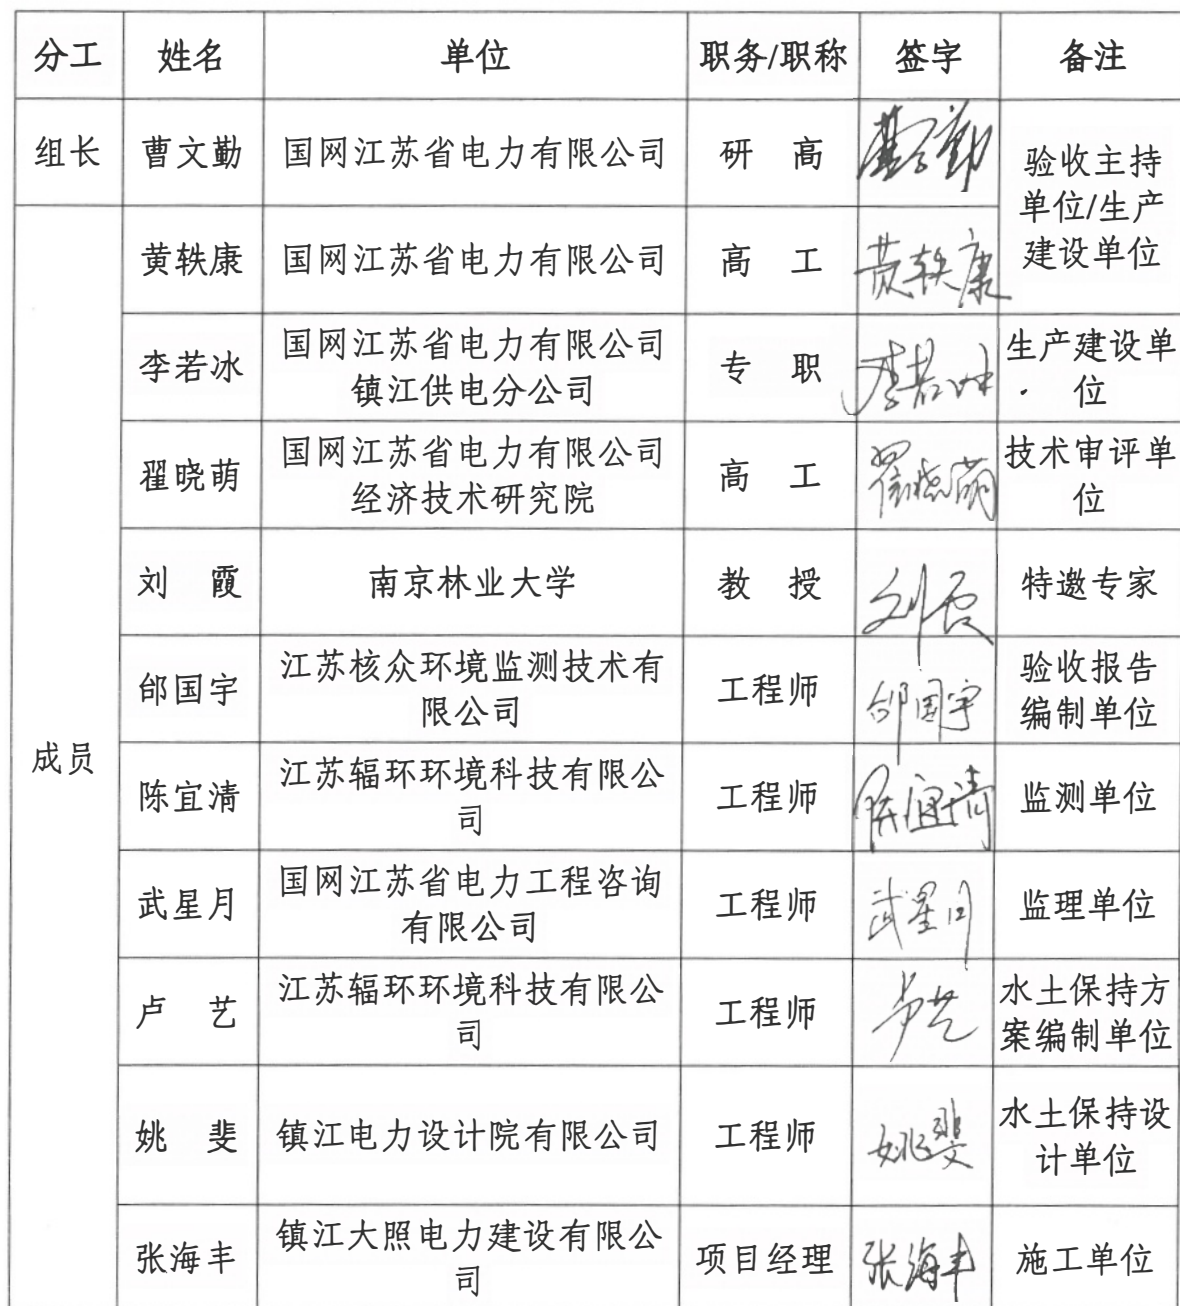 分工 姓名 单位 职务/职称 签字 备注
组长 曹文勤 国网江苏省电力有限公司 研 高 曹文勤 验收主持
单位/生产
建设单位
成员 黄轶康 国网江苏省电力有限公司 高 工 黄轶康
李若冰 国网江苏省电力有限公司
镇江供电分公司 专 职 李若冰 生产建设单
位
翟晓萌 国网江苏省电力有限公司
经济技术研究院 高 工 翟晓萌 技术审评单
位
刘 霞 南京林业大学 教 授 刘霞 特邀专家
邰国宇 江苏核众环境监测技术有
限公司 工程师 邰国宇 验收报告
编制单位
陈宜清 江苏辐环环境科技有限公
司 工程师 陈宜清 监测单位
武星月 国网江苏省电力工程咨询
有限公司 工程师 武星月 监理单位
卢 艺 江苏辐环环境科技有限公
司 工程师 卢艺 水土保持方
案编制单位
姚 斐 镇江电力设计院有限公司 工程师 姚斐 水土保持设
计单位
张海丰 镇江大照电力建设有限公
司 项目经理 张海丰 施工单位